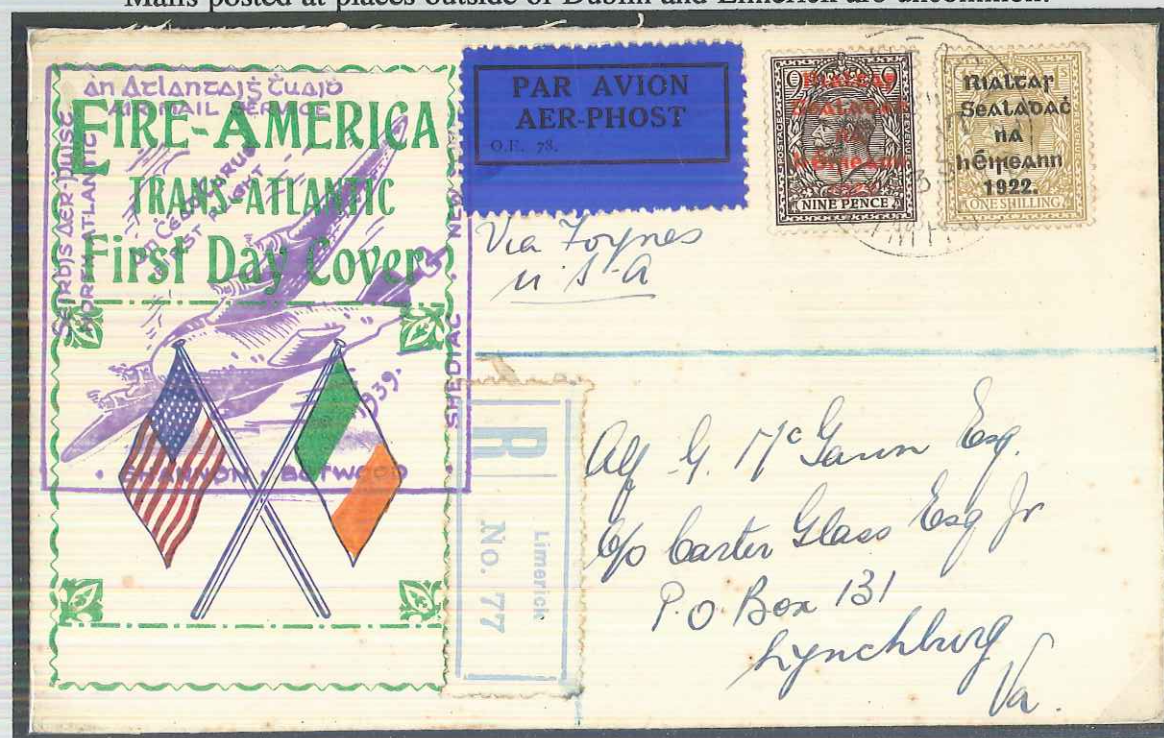 Mails posted at places outside of Dublin and Limerick are uncommon.
an Atlantaiġ Ṫuaiḋ
AIR MAIL SERVICE
EIRE-AMERICA
TRANS-ATLANTIC
First Day Cover
NORTH ATLANTIC
FIRST FLIGHT
SHEDIAC NEW
1939.
SHANNON · BOTWOOD
PAR AVION
AER-PHOST
O.E. 78.
Rialtas
Sealadaċ
na
hÉireann
1922
POSTAGE REVENUE
NINE PENCE
Rialtas
Sealadaċ
na
hÉireann
1922.
ONE SHILLING
Via Foynes
U.S.A
R
Limerick
No. 77
Alf G. McGann Esq.
c/o Carter Glass Esq Jr
P.O Box 131
Lynchburg
Va.